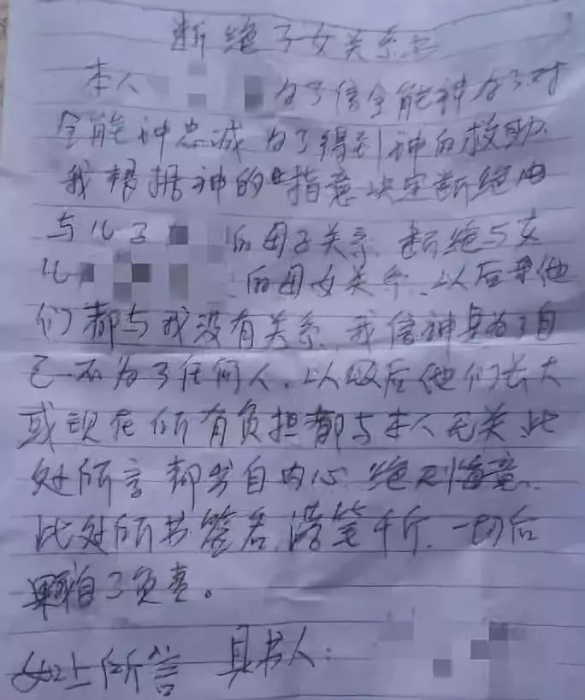 断绝子女关系书
本人 为了信全能神为了对
全能神忠诚为了得到神的救助、
我根据神的指意决定断绝
与儿子 的母子关系. 断绝与女
儿 的母女关系、以后他
们都与我没有关系. 我信神是为了自
己不为了任何人. 以后他们长大
或现在所有负担都与本人无关. 此
处所言都发自内心 绝
此处所书签名, 落笔千斤. 一切后
果自己负责。
如上所言 具书人: